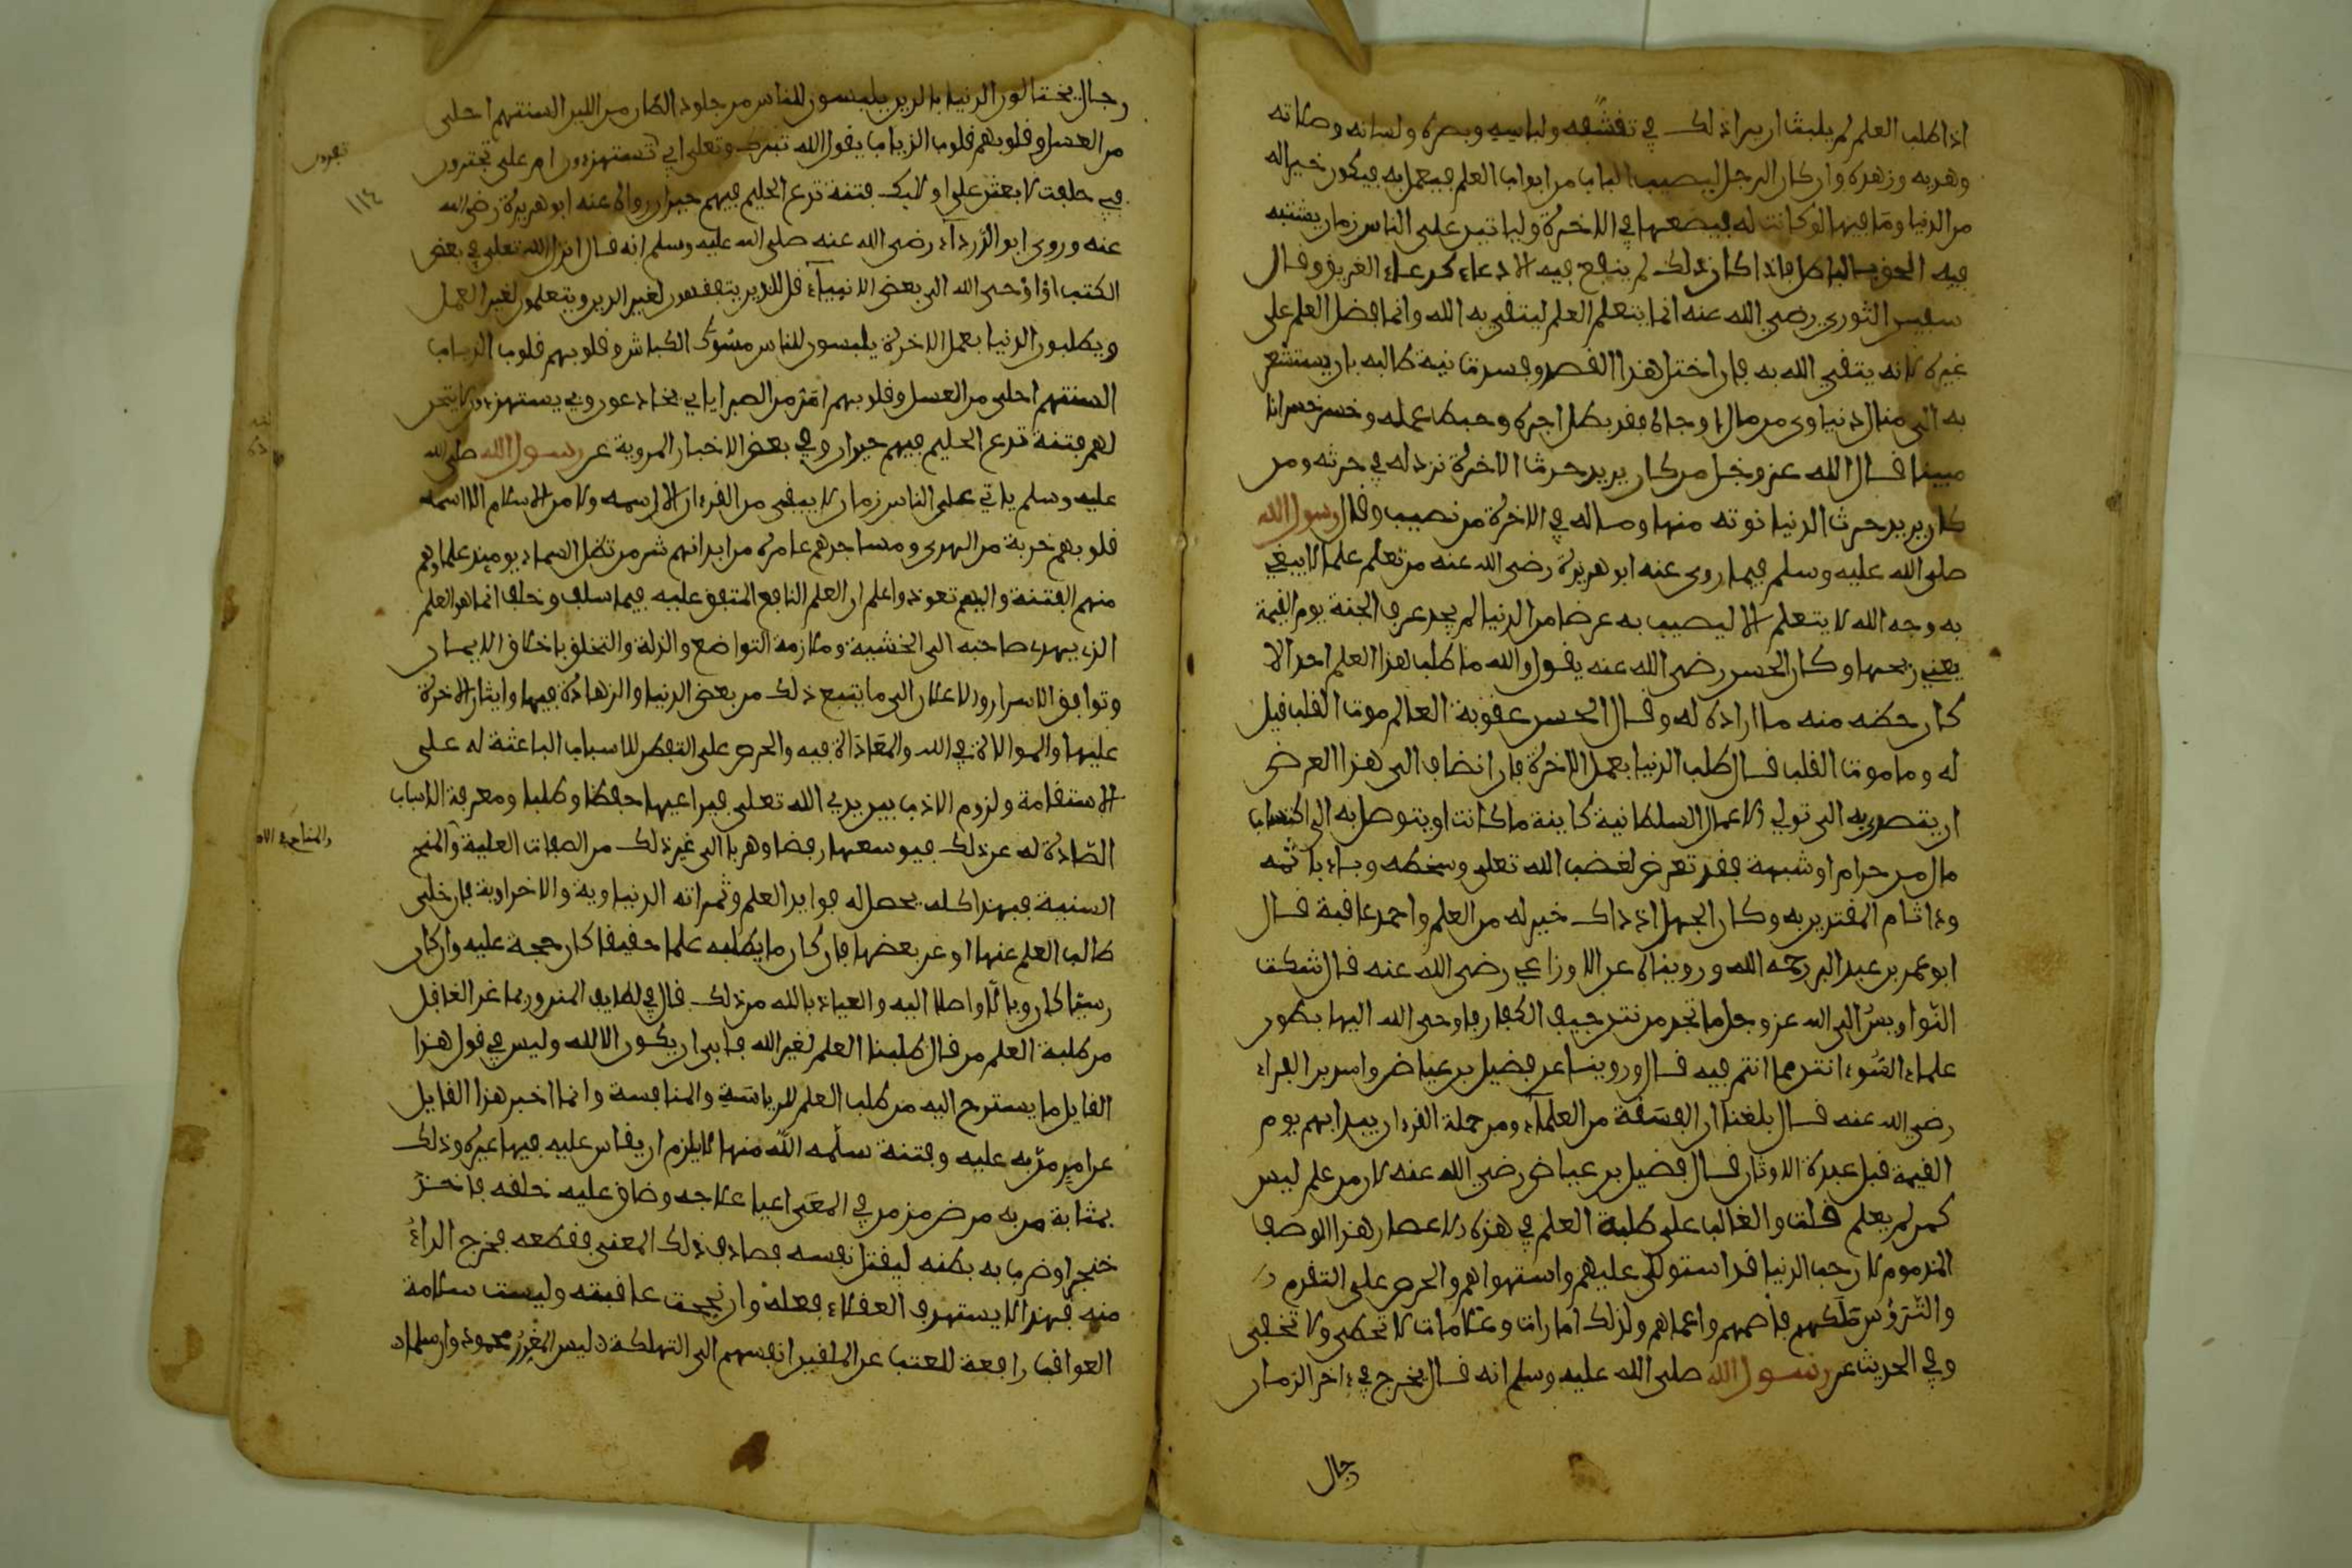 اذا طلب العلم لم يلبث ان يرا ذلك في تخشعه ولباسه وبصره ولسانه وصلاته
وهديه وزهده وان كان الرجل ليصيب الباب من ابواب العلم فيعمل به فيكون خيرا له
من الدنيا وما فيها لو كانت له فيضعها في الاخرة ولياتين على الناس زمان يشتبه
فيه الحق بالباطل فاذا كان ذلك لم ينفع فيه الا دعاء كدعاء الغريق وقال
سفين الثوري رضي الله عنه انما يتعلم العلم ليتقى به الله وانما فضل العلم على
غيره لانه يتقى الله به فان اختل هذا القصد وفسدت نية طالبه بان يستشعر
به الى منال دنياوي من مال او جاه فقد بطل اجره وحبط عمله وخسر خسرانا
مبينا قال الله عز وجل من كان يريد حرث الاخرة نزد له في حرثه ومن
كان يريد حرث الدنيا نوته منها وماله في الاخرة من نصيب وقال رسول الله
صلى الله عليه وسلم فيما روى عنه ابو هريرة رضي الله عنه من تعلم علما لا يبتغي
به وجه الله لا يتعلمه الا ليصيب به عرضا من الدنيا لم يجد عرف الجنة يوم القيمة
يعني ريحها وكان الحسن رضي الله عنه يقول والله ما طلب هذا العلم احد الا
كان حظه منه ما اراده له وقال الحسن عقوبة العالم موت القلب قيل
له وما موت القلب قال طلب الدنيا بعمل الاخرة فان انضاف الى هذا الغرض
ان يتصدى به الى تولي الاعمال السلطانية كاينة ما كانت او يتوصل به الى اكتساب
مال من حرام او شبهة فقد تعرض لغضب الله تعلى وسخطه وباء باثمه
وءاثام المقتدين به وكان الجهل اذ ذاك خير له من العلم واحمد عاقبة قال
ابو عمر بن عبد البر رحمه الله وروينا عن الاوزاعي رضي الله عنه قال شكت
النواويس الى الله عز وجل ما تجد من نتن جيف الكفار فاوحى الله اليها بطون
علماء السوء انتن مما انتم فيه قال وروينا عن فضيل بن عياض واسد بن الفرات
رضي الله عنه قال بلغنا ان الفسقة من العلماء ومن حملة القرءان يبدا بهم يوم
القيمة قبل عبدة الاوثان قال فضيل بن عياض رضي الله عنه لان من علم ليس
كمن لم يعلم قلت والغالب على طلبة العلم في هذه الاعصار هذا الوصف
المذموم لان حب الدنيا قد استولى عليهم واستهواهم والحرص على التقدم
والترؤس ملكهم فاصمهم واعماهم ولذلك امارات وعلامات لا تحصى ولا تخفى
وفي الحديث عن رسول الله صلى الله عليه وسلم انه قال يخرج في ءاخر الزمان
جال
رجال يختالون الدنيا بالدين يلبسون للناس من جلود الضان من اللين السنتهم احلى
من العسل وقلوبهم قلوب الذياب يقول الله تبرك وتعلى ابي تستهزءون ام علي تجترون
فبي حلفت لابعثن على اوليك فتنة تدع الحليم فيهم حيران رواه عنه ابو هريرة رضي الله
عنه وروى ابو الدرداء رضي الله عنه صلى الله عليه وسلم انه قال انزل الله تعلى في بعض
الكتب او اوحى الله الى بعض الانبياء قل للذين يتفقهون لغير الدين ويتعلمون لغير العمل
ويطلبون الدنيا بعمل الاخرة يلبسون للناس مسوك الكباش وقلوبهم قلوب الذياب
السنتهم احلى من العسل وقلوبهم امر من الصبر اياي يخادعون وبي يستهزءون لاتيحن
لهم فتنة تدع الحليم فيهم حيران وفي بعض الاخبار المروية عن رسول الله صلى الله
عليه وسلم ياتي على الناس زمان لا يبقى من القرءان الا رسمه ولا من الاسلام الا اسمه
قلوبهم خربة من الهدى ومساجدهم عامرة من ابدانهم شر من تظل السماء يوميذ علماوهم
منهم الفتنة واليهم تعود واعلم ان العلم النافع المتفق عليه فيما سلف وخلف انما هو العلم
الذي يهدي صاحبه الى الخشية وملازمة التواضع والذلة والتخلق باخلاق الايمان
وتوافق الاسرار والاعلان الى ما يتبع ذلك من بغض الدنيا والزهادة فيها وايثار الاخرة
عليها والموالاة في الله والمعاداة فيه والحرص على التفطن للاسباب الباعثة له على
الاستقامة ولزوم الادب بين يدي الله تعلى فيراعيها حفظا وطلبا ومعرفة الاسباب
الصادة له عن ذلك فيوسعها رفضا وهربا الى غير ذلك من الصفات العلية والمنح
السنية فبهذا كله يحصل له فوايد العلم وثمراته الدنياوية والاخراوية فان خلى
طالب العلم عنها او عن بعضها فان كان ما يطلبه علما حقيقا كان حجة عليه وان كان
رسميا كان وبالا واصلا اليه والعياذ بالله من ذلك قال في لطايف المنن وربما غر الغافل
من طلبة العلم من قال طلبنا العلم لغير الله فابى ان يكون الا لله وليس في قول هذا
القايل ما يستروح اليه من طلب العلم للرياسة والمنافسة وانما اخبر هذا القايل
عن امر من به عليه وفتنة سلمه الله منها لا يلزم ان يقاس عليه فيها غيره وذلك
بمثابة من به مرض مزمن في المعى اعيا علاجه وضاق عليه خلقه فاخذ
خنجرا وضرب به بطنه ليقتل نفسه فصادف ذلك المعنى فقطعه فخرج الداء
منه فهذا لا يستهدف العقلاء فعله وان نجحت عاقبته وليست سلامة
العواقب رافعة للعتب عن الملقين انفسهم الى التهلكة ليس المغرر محمود وان سلما
١١٤